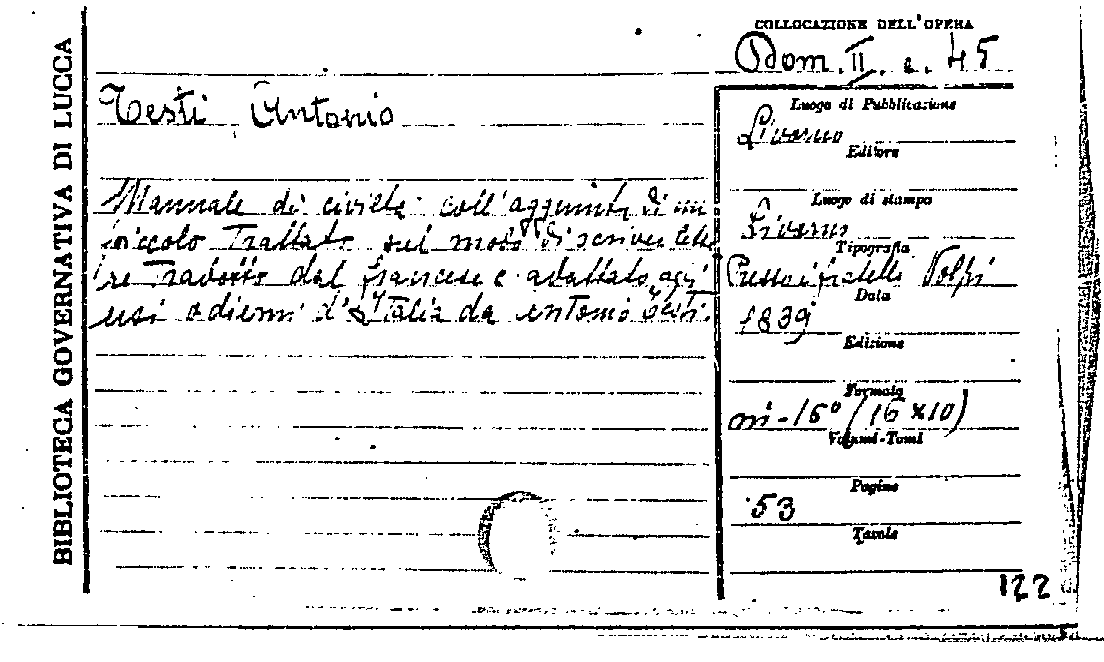 BIBLIOTECA GOVERNATIVA DI LUCCA
COLLOCAZIONE DELL'OPERA
Dom. II. e. 45
Testi Antonio
Mannale di civiltà coll'aggiunta di un
piccolo Trattato sul modo di scriver lette
re Tradotto dal francese e adattato agli
usi odierni d'Italia da Antonio Testi.
Luogo di Pubblicazione
Livorno
Editore
Luogo di stampa
Livorno
Tipografia
Presso i fratelli Volpi
Data
1839
Edizione
Formato
in-16° (16 x 10)
Volumi-Tomi
Pagine
53
Tavole
122